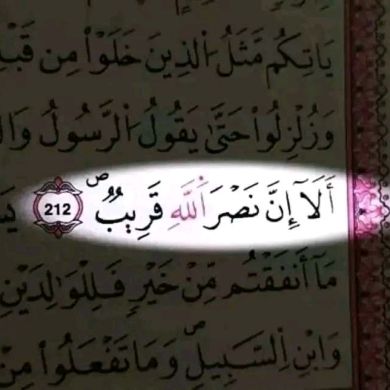 يَاتِكُم مَّثَلُ اُ۬لذِينَ خَلَوْاْ مِن قَبْلِ
وَزُلْزِلُواْ حَتَّىٰ يَقُولُ اُ۬لرَّسُولُ وَال
أَلَآ إِنَّ نَصْرَ اَ۬للَّهِ قَرِيبٌۖ 212 يَس
مَآ أَنفَقْتُم مِّنْ خَيْرٖ فَلِلْوَٰلِدَيْنِ
وَابْنِ اِ۬لسَّبِيلِۖ وَمَا تَفْعَلُواْ مِنْ